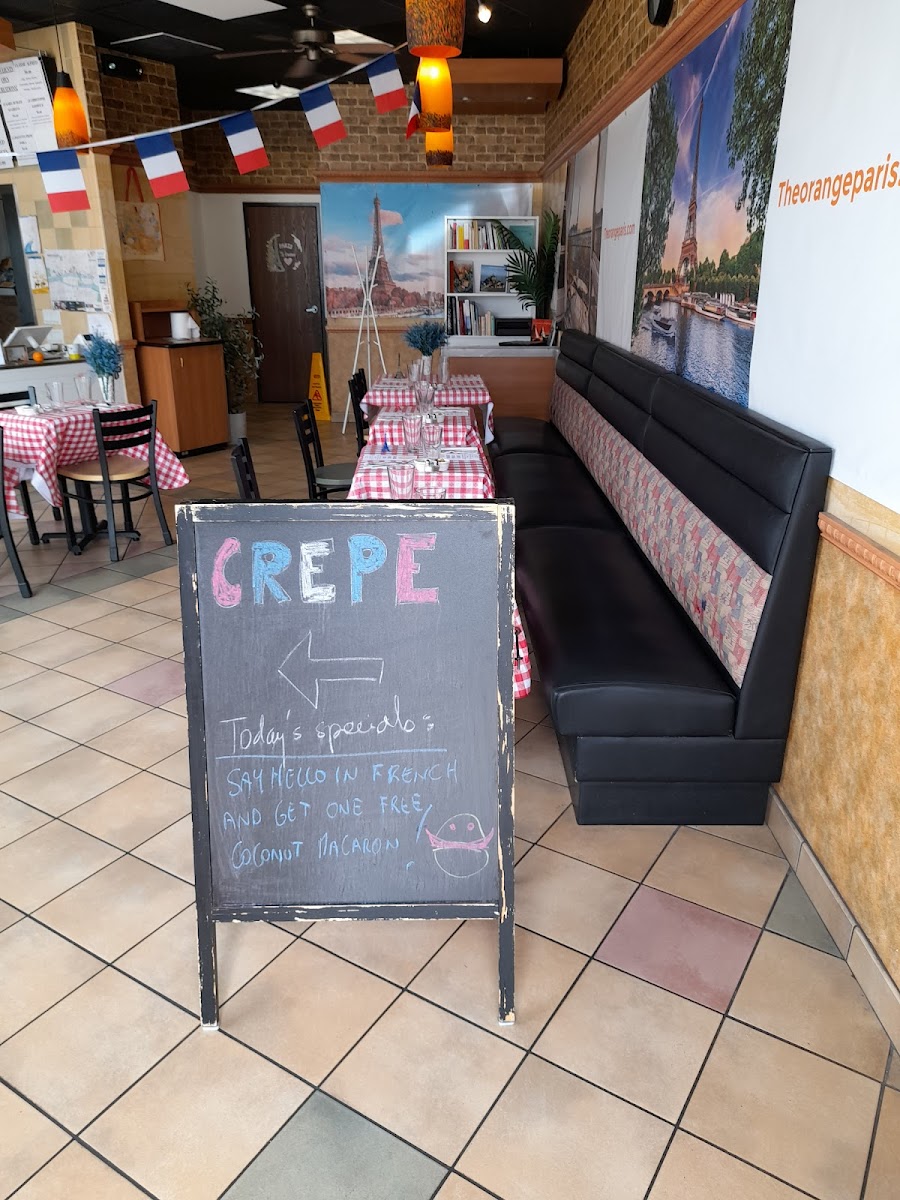 Theorangeparis.
Theorangeparis.com
CREPE
Today's specials:
SAY HELLO IN FRENCH
AND GET ONE FREE
COCONUT MACARON